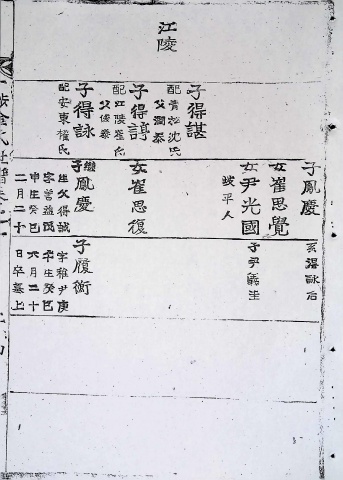 江陵
子得諶
配青松沈氏
父潤泰
子得諄
配江陵崔氏
父俊泰
子得詠
配安東權氏
子鳳慶
系得詠后
女崔思覺
女尹光國
坡平人
子尹義生
女崔思復
繼子鳳慶
生父得誠
字善益
生癸巳
二月二十
子履衡
字稚尹庚
生癸巳
六月二十
日卒墓上